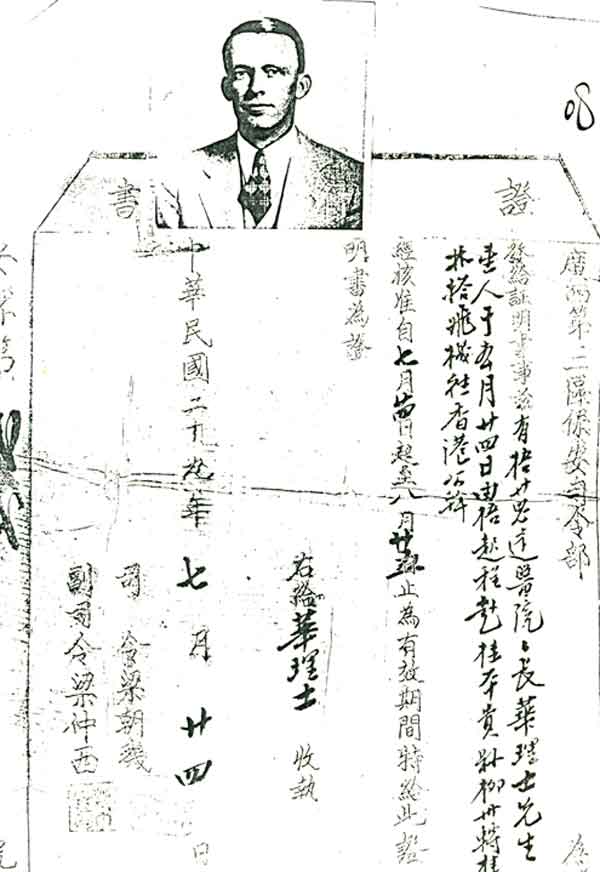 證 書
廣西第三區保安司令部
發給証明書事茲有梧州思達醫院々長華理士先生
壹人于本月廿四日由梧起程赴桂平貴縣柳州轉桂
林搭飛機往香港公幹
經核准自七月廿四日起至八月廿 止為有效期間特給此證
明書為證
右給華理士 收執
中華民國二十九年七月廿四日
司令梁朝璣
副司令梁仲西